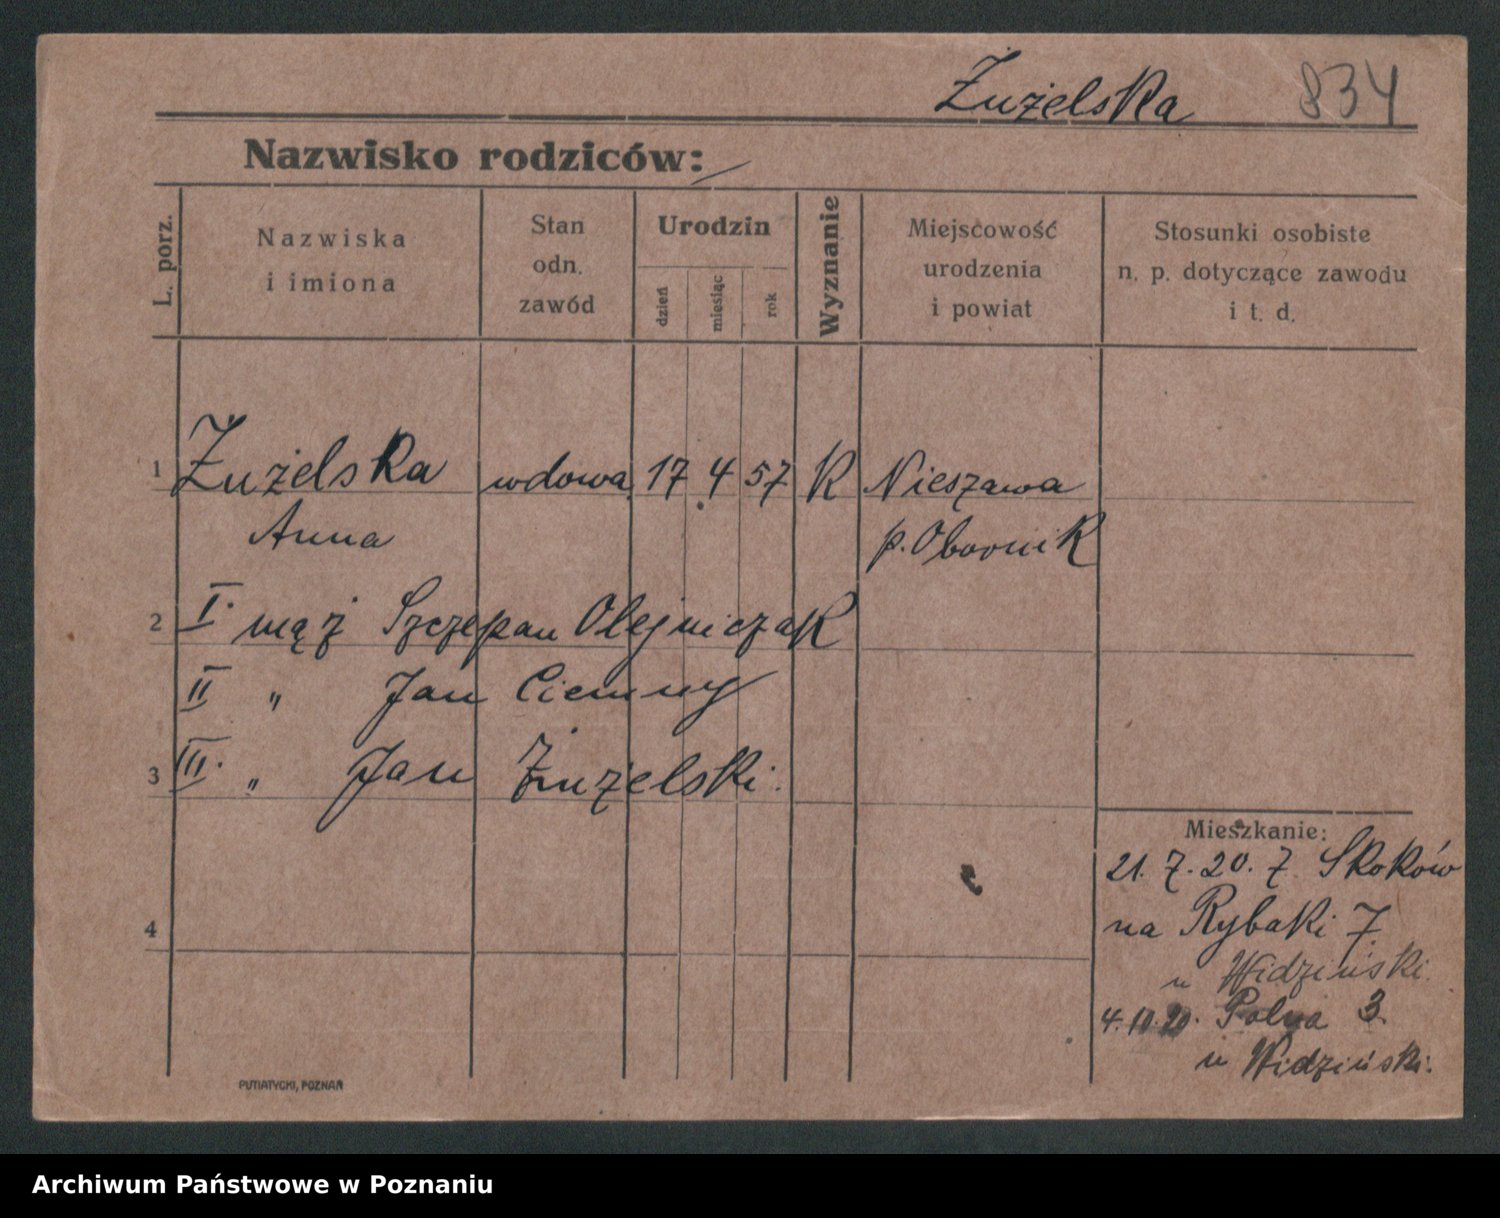 Żużelska 834
Nazwisko rodziców:
L. porz.
Nazwiska
i imiona
Stan
odn.
zawód
Urodzin
dzień
miesiąc
rok
Wyznanie
Miejscowość
urodzenia
i powiat
Stosunki osobiste
n. p. dotyczące zawodu
i t. d.
1 Żużelska wdowa 17 4 57 K Nieszawa
Anna p. Obornik
2 I. mąż Szczepan Olejniczak
II " Jan Ciemny
3 III. " Jan Żużelski.
4
Mieszkanie:
21. 7. 20. z Skoków
na Rybaki 7
u Widziński.
4.10.20. Polna 3.
u Widziński.
PUTIATYCKI, POZNAŃ
Archiwum Państwowe w Poznaniu